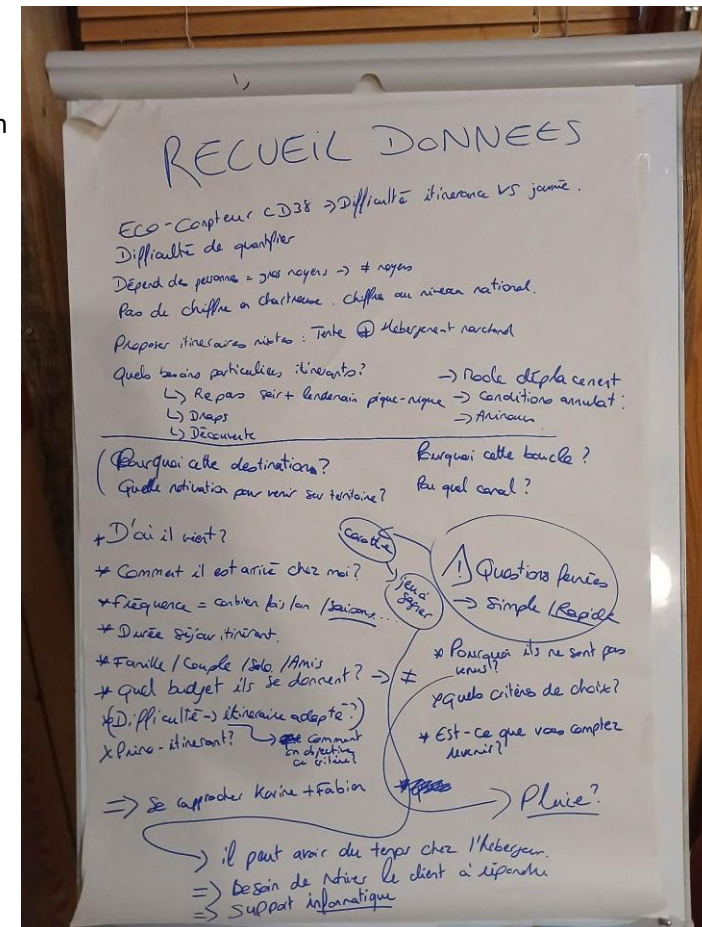 n
RECUEIL DONNEES
ECO-Compteur CD38 => Difficulté itinérance VS journée.
Difficulté de quantifier
Dépend des personnes = gros noyers -> ≠ noyers
Pas de chiffre en chartreuse. Chiffre au niveau national.
Proposer itinéraires mixtes : Tente + Hébergement marchand
Quels besoins particuliers itinérants?
↳ Repas soir + lendemain pique-nique
↳ Draps
↳ Découverte
-> Mode déplacement
-> Conditions annulat:
-> Animaux
Pourquoi cette destination?
Quelle motivation pour venir sur territoire?
Pourquoi cette boucle?
Par quel canal?
+ D'où il vient?
* Comment il est arrivé chez moi?
* Fréquence = combien fois/an / saisons...
* Durée séjour itinérant.
* Famille / Couple / Solo / Amis
* Quel budget ils se donnent? -> ≠
* (Difficulté -> itinéraire adapté?)
-> comment on objective ce critère?
* Primo-itinérant?
carotte
jeu à gagner
⚠ Questions fermées
-> Simple / Rapide
* Pourquoi ils ne sont pas venus?
* Quels critères de choix?
* Est-ce que vous comptez revenir?
=> Se rapprocher Karine + Fabien
-> Pluie?
-> il peut avoir du temps chez l'hébergeur.
=> Besoin de motiver le client à répondre
=> Support informatique